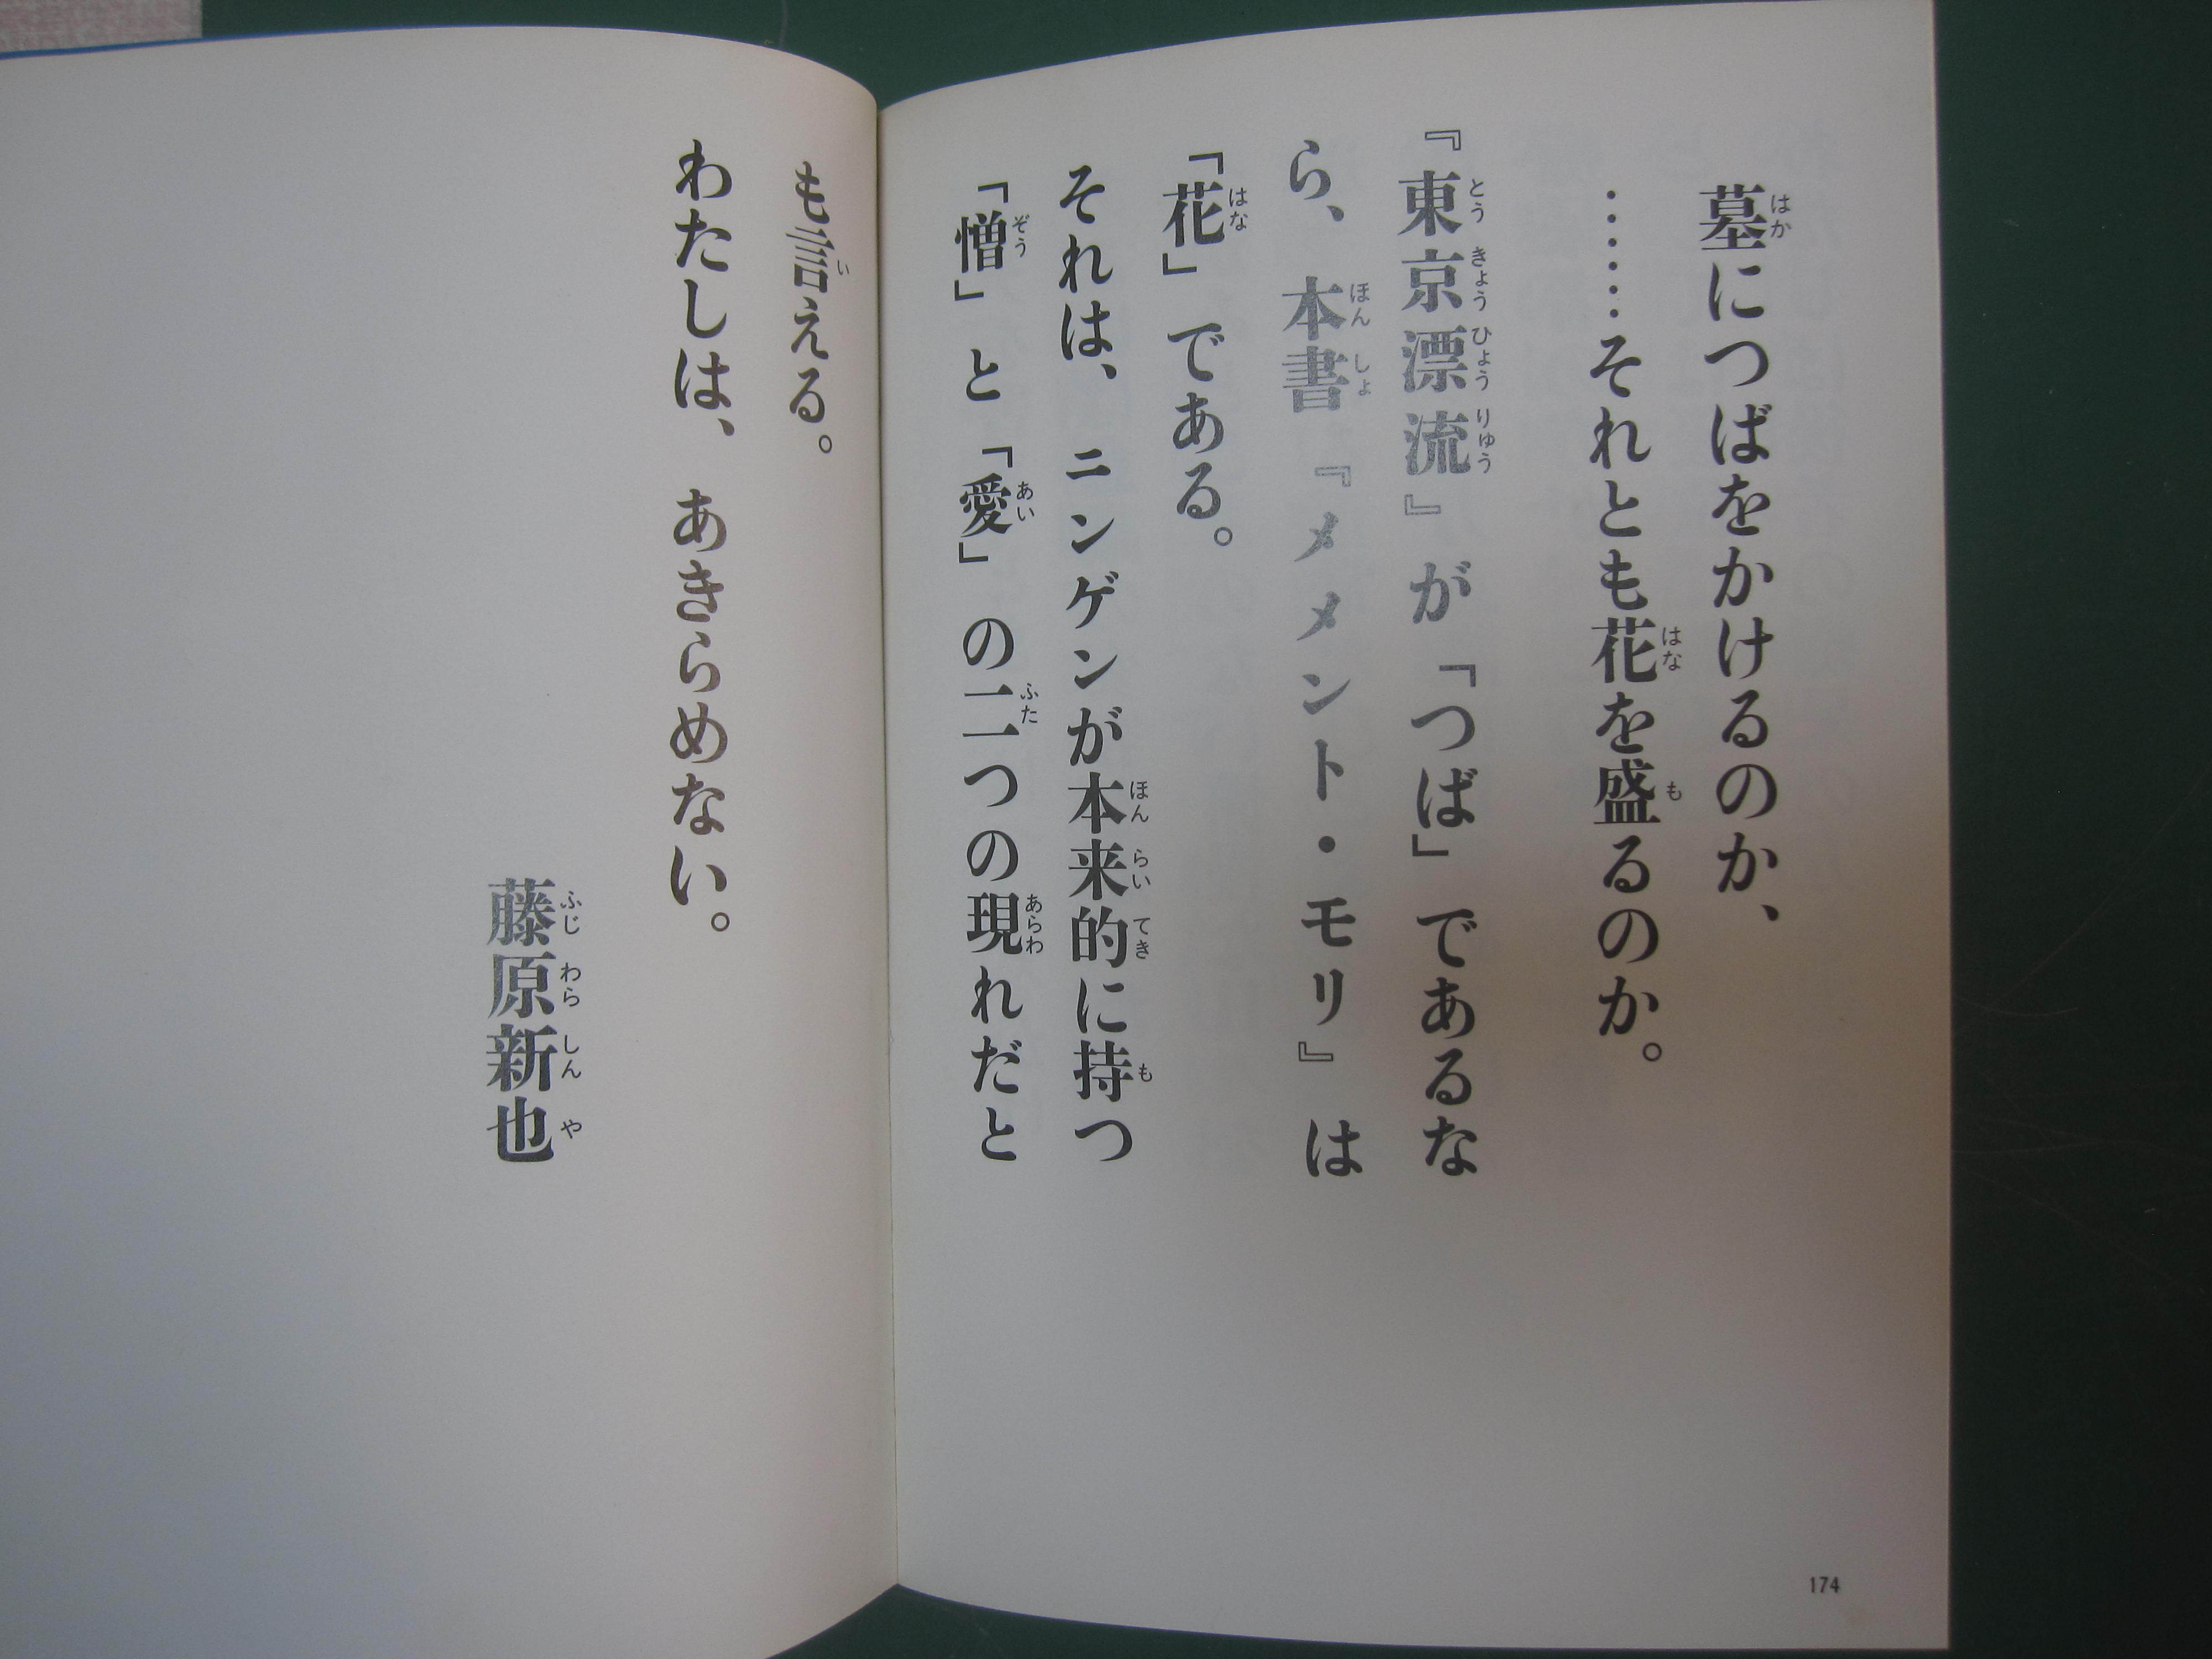 墓につばをかけるのか、
……それとも花を盛るのか。
『東京漂流』が「つば」であるな
ら、本書『メメント・モリ』は
「花」である。
それは、ニンゲンが本来的に持つ
「憎」と「愛」の二つの現れだと
174
も言える。
わたしは、あきらめない。
藤原新也